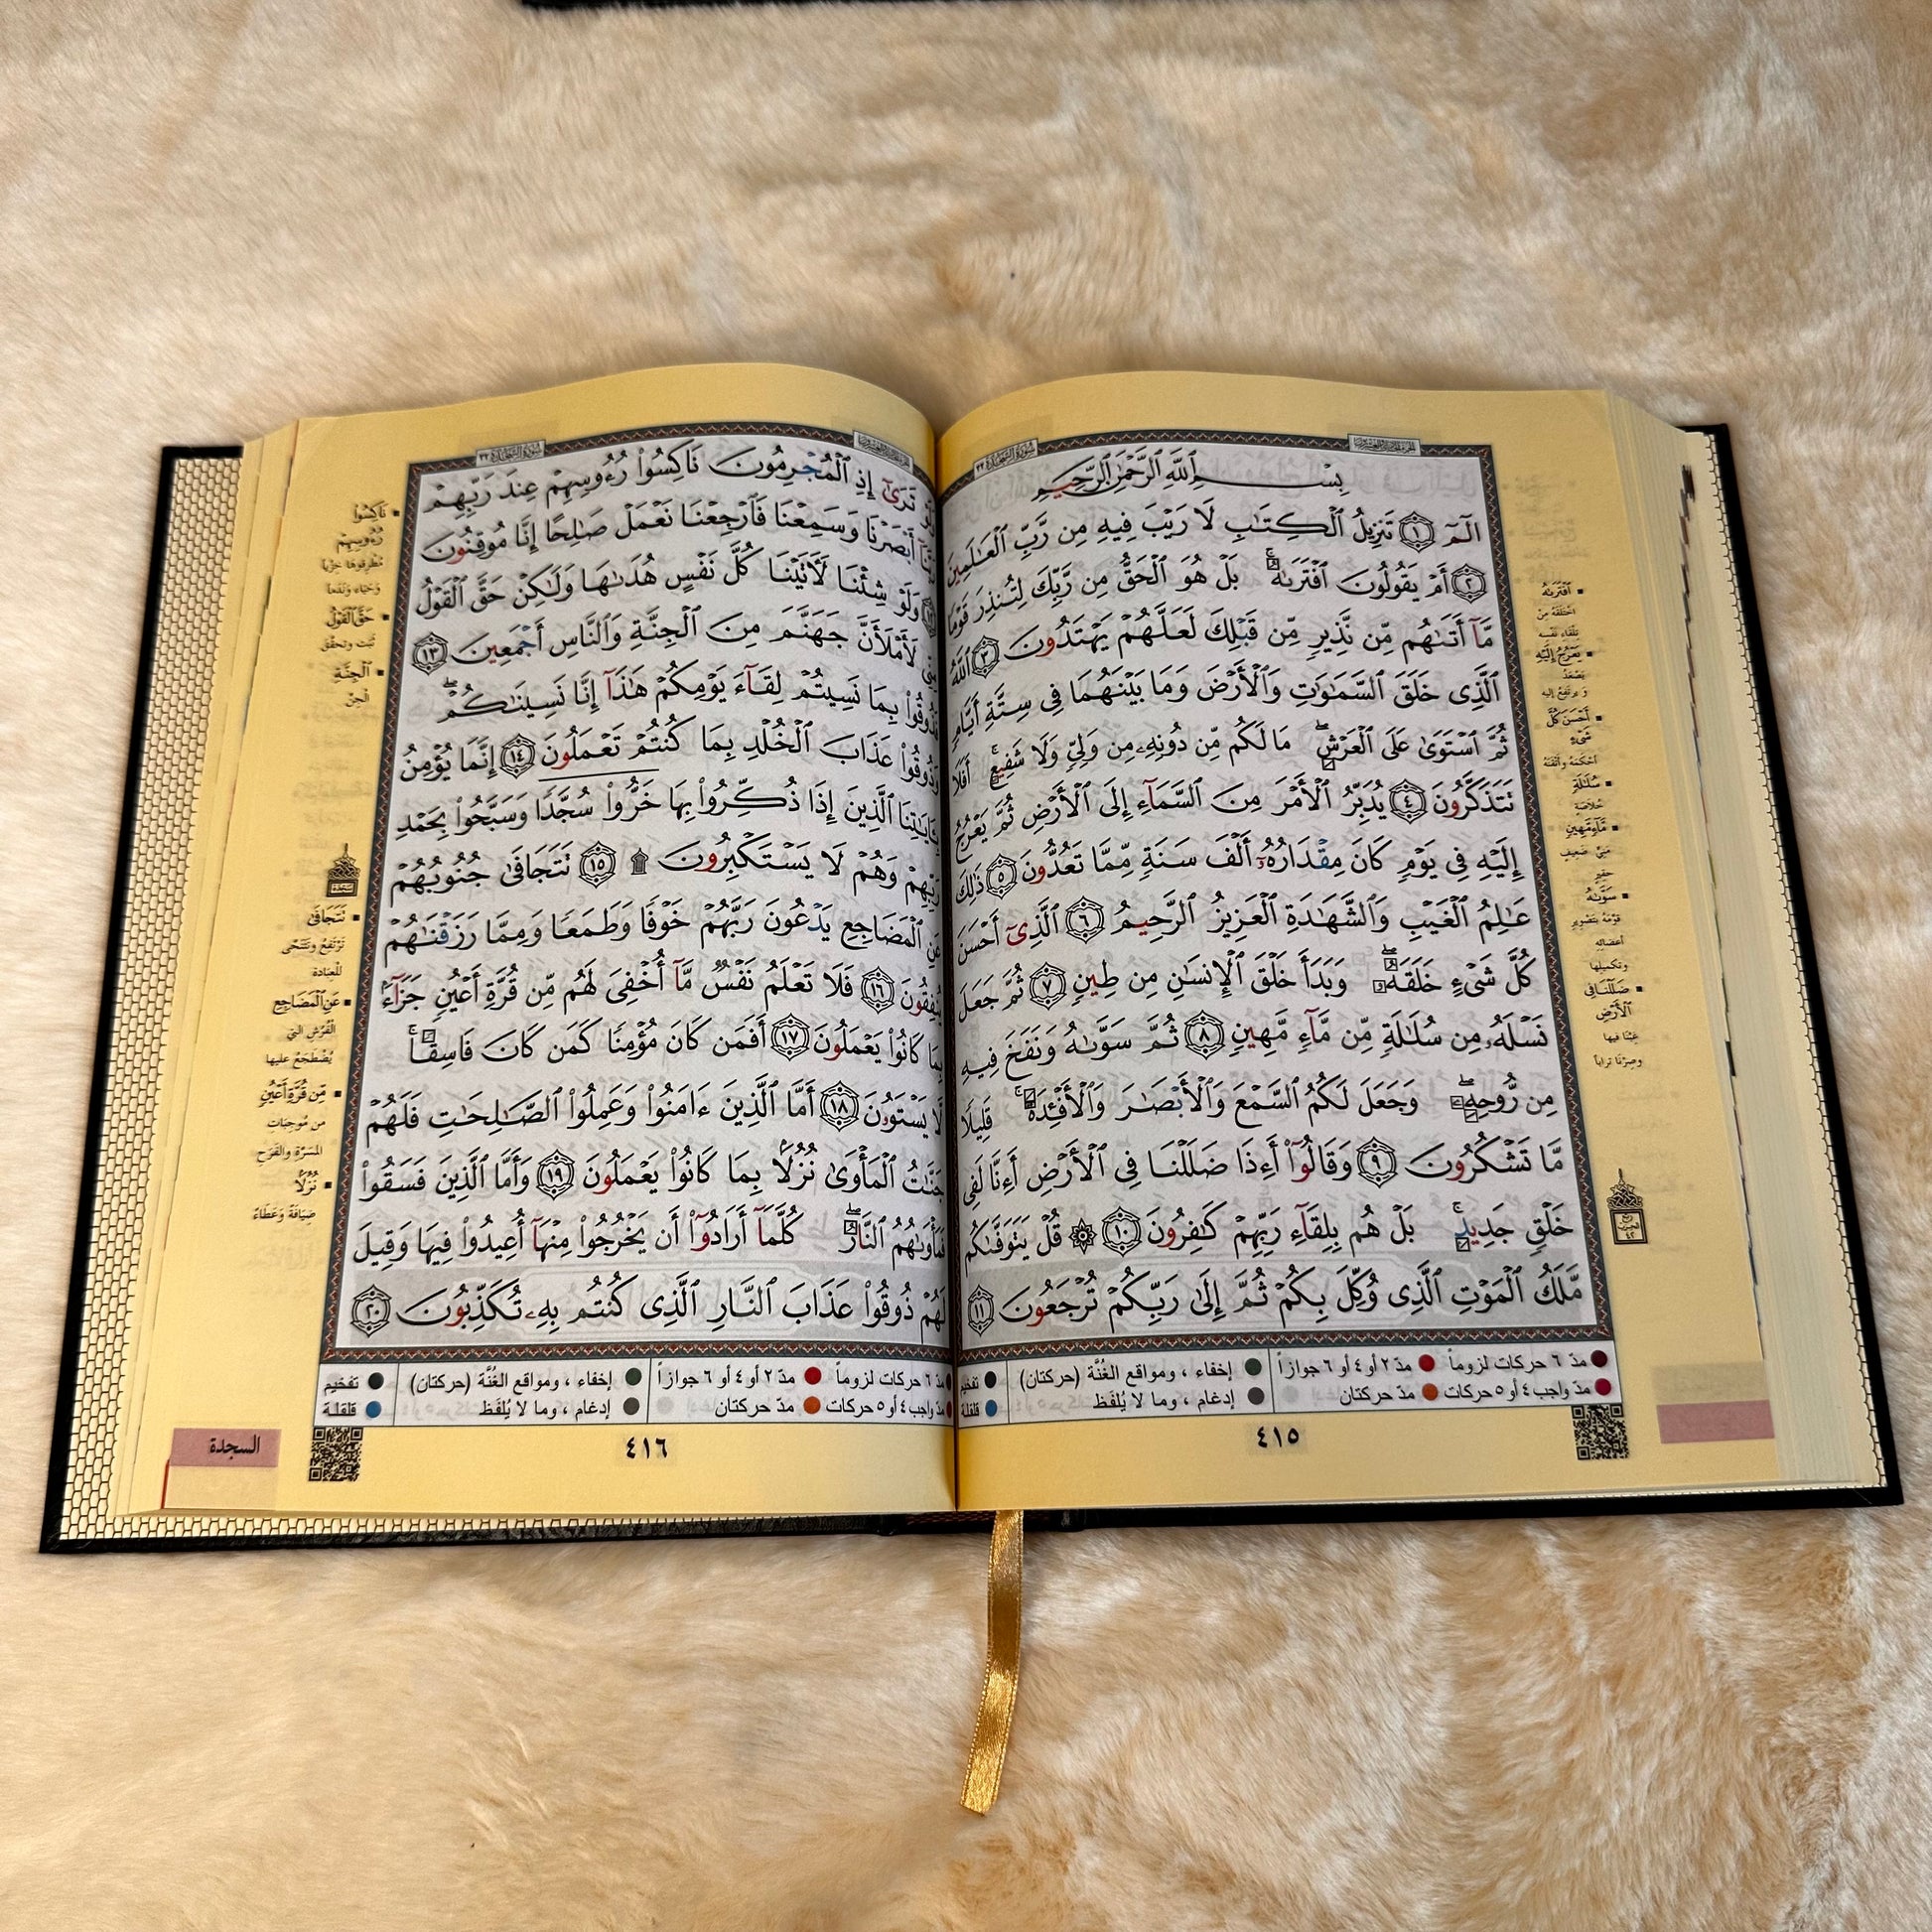 سورة السجدة ٣٢
بِسْمِ ٱللَّهِ ٱلرَّحْمَٰنِ ٱلرَّحِيمِ
الٓمٓ ١ تَنزِيلُ ٱلْكِتَٰبِ لَا رَيْبَ فِيهِ مِن رَّبِّ ٱلْعَٰلَمِينَ
٢ أَمْ يَقُولُونَ ٱفْتَرَىٰهُ ۚ بَلْ هُوَ ٱلْحَقُّ مِن رَّبِّكَ لِتُنذِرَ قَوْمًا
مَّآ أَتَىٰهُم مِّن نَّذِيرٍ مِّن قَبْلِكَ لَعَلَّهُمْ يَهْتَدُونَ ٣ ٱللَّهُ
ٱلَّذِى خَلَقَ ٱلسَّمَٰوَٰتِ وَٱلْأَرْضَ وَمَا بَيْنَهُمَا فِى سِتَّةِ أَيَّامٍ
ثُمَّ ٱسْتَوَىٰ عَلَى ٱلْعَرْشِ ۖ مَا لَكُم مِّن دُونِهِۦ مِن وَلِىٍّ وَلَا شَفِيعٍ ۚ أَفَلَا
تَتَذَكَّرُونَ ٤ يُدَبِّرُ ٱلْأَمْرَ مِنَ ٱلسَّمَآءِ إِلَى ٱلْأَرْضِ ثُمَّ يَعْرُجُ
إِلَيْهِ فِى يَوْمٍ كَانَ مِقْدَارُهُۥٓ أَلْفَ سَنَةٍ مِّمَّا تَعُدُّونَ ٥ ذَٰلِكَ
عَٰلِمُ ٱلْغَيْبِ وَٱلشَّهَٰدَةِ ٱلْعَزِيزُ ٱلرَّحِيمُ ٦ ٱلَّذِىٓ أَحْسَنَ
كُلَّ شَىْءٍ خَلَقَهُۥ ۖ وَبَدَأَ خَلْقَ ٱلْإِنسَٰنِ مِن طِينٍ ٧ ثُمَّ جَعَلَ
نَسْلَهُۥ مِن سُلَٰلَةٍ مِّن مَّآءٍ مَّهِينٍ ٨ ثُمَّ سَوَّىٰهُ وَنَفَخَ فِيهِ
مِن رُّوحِهِۦ ۖ وَجَعَلَ لَكُمُ ٱلسَّمْعَ وَٱلْأَبْصَٰرَ وَٱلْأَفْـِٔدَةَ ۚ قَلِيلًا
مَّا تَشْكُرُونَ ٩ وَقَالُوٓا۟ أَءِذَا ضَلَلْنَا فِى ٱلْأَرْضِ أَءِنَّا لَفِى
خَلْقٍ جَدِيدٍۭ ۚ بَلْ هُم بِلِقَآءِ رَبِّهِمْ كَٰفِرُونَ ١٠ ۞ قُلْ يَتَوَفَّىٰكُم
مَّلَكُ ٱلْمَوْتِ ٱلَّذِى وُكِّلَ بِكُمْ ثُمَّ إِلَىٰ رَبِّكُمْ تُرْجَعُونَ ١١
ٱفْتَرَىٰهُ
اختلقه من
تلقاء نفسه
يَعْرُجُ إِلَيْهِ
يصعد
ويرتفع إليه
أَحْسَنَ كُلَّ
شَىْءٍ
أحكمه وأتقنه
سُلَٰلَةٍ
خلاصة
مَّآءٍ مَّهِينٍ
مني ضعيف
حقير
سَوَّىٰهُ
قوّمه بتصوير
أعضائه
وتكميلها
ضَلَلْنَا فِى
ٱلْأَرْضِ
غبنا فيها
وصرنا تراباً
مدّ ٦ حركات لزوماً مدّ ٢ أو ٤ أو ٦ جوازاً إخفاء ، ومواقع الغُنَّة (حركتان) تفخيم
مدّ واجب ٤ أو ٥ حركات مدّ حركتان إدغام ، وما لا يُلفَظ قلقلة
٤١٥
سورة السجدة ٣٢
وَلَوْ تَرَىٰٓ إِذِ ٱلْمُجْرِمُونَ نَاكِسُوا۟ رُءُوسِهِمْ عِندَ رَبِّهِمْ
رَبَّنَآ أَبْصَرْنَا وَسَمِعْنَا فَٱرْجِعْنَا نَعْمَلْ صَٰلِحًا إِنَّا مُوقِنُونَ
١٢ وَلَوْ شِئْنَا لَـَٔاتَيْنَا كُلَّ نَفْسٍ هُدَىٰهَا وَلَٰكِنْ حَقَّ ٱلْقَوْلُ
مِنِّى لَأَمْلَأَنَّ جَهَنَّمَ مِنَ ٱلْجِنَّةِ وَٱلنَّاسِ أَجْمَعِينَ ١٣
فَذُوقُوا۟ بِمَا نَسِيتُمْ لِقَآءَ يَوْمِكُمْ هَٰذَآ إِنَّا نَسِينَٰكُمْ ۖ
وَذُوقُوا۟ عَذَابَ ٱلْخُلْدِ بِمَا كُنتُمْ تَعْمَلُونَ ١٤ إِنَّمَا يُؤْمِنُ
بِـَٔايَٰتِنَا ٱلَّذِينَ إِذَا ذُكِّرُوا۟ بِهَا خَرُّوا۟ سُجَّدًا وَسَبَّحُوا۟ بِحَمْدِ
رَبِّهِمْ وَهُمْ لَا يَسْتَكْبِرُونَ ۩ ١٥ تَتَجَافَىٰ جُنُوبُهُمْ
عَنِ ٱلْمَضَاجِعِ يَدْعُونَ رَبَّهُمْ خَوْفًا وَطَمَعًا وَمِمَّا رَزَقْنَٰهُمْ
يُنفِقُونَ ١٦ فَلَا تَعْلَمُ نَفْسٌ مَّآ أُخْفِىَ لَهُم مِّن قُرَّةِ أَعْيُنٍ جَزَآءًۢ
بِمَا كَانُوا۟ يَعْمَلُونَ ١٧ أَفَمَن كَانَ مُؤْمِنًا كَمَن كَانَ فَاسِقًا ۚ
لَّا يَسْتَوُۥنَ ١٨ أَمَّا ٱلَّذِينَ ءَامَنُوا۟ وَعَمِلُوا۟ ٱلصَّٰلِحَٰتِ فَلَهُمْ
جَنَّٰتُ ٱلْمَأْوَىٰ نُزُلًۢا بِمَا كَانُوا۟ يَعْمَلُونَ ١٩ وَأَمَّا ٱلَّذِينَ فَسَقُوا۟
فَمَأْوَىٰهُمُ ٱلنَّارُ ۖ كُلَّمَآ أَرَادُوٓا۟ أَن يَخْرُجُوا۟ مِنْهَآ أُعِيدُوا۟ فِيهَا وَقِيلَ
لَهُمْ ذُوقُوا۟ عَذَابَ ٱلنَّارِ ٱلَّذِى كُنتُم بِهِۦ تُكَذِّبُونَ ٢٠
نَاكِسُوا۟
رُءُوسِهِمْ
مُطرقوها خزياً
وحياء وندماً
حَقَّ ٱلْقَوْلُ
ثبت وتحقّق
ٱلْجِنَّةِ
الجنّ
تَتَجَافَىٰ
ترتفع وتتنحّى
للعبادة
عَنِ ٱلْمَضَاجِعِ
الفُرُش التي
يُضطجع عليها
مِّن قُرَّةِ أَعْيُنٍ
من موجبات
المسرّة والفرح
نُزُلًا
ضيافة وعطاءً
مدّ ٦ حركات لزوماً مدّ ٢ أو ٤ أو ٦ جوازاً إخفاء ، ومواقع الغُنَّة (حركتان) تفخيم
مدّ واجب ٤ أو ٥ حركات مدّ حركتان إدغام ، وما لا يُلفَظ قلقلة
٤١٦
السجدة